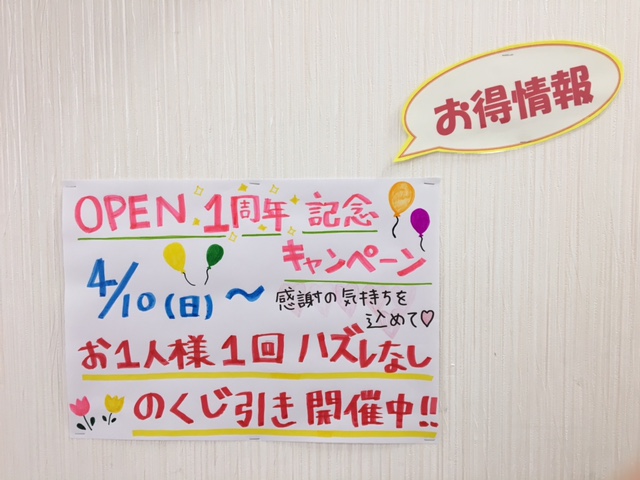 お得情報
OPEN 1周年 記念
キャンペーン
4/10(日)〜
感謝の気持ちを
込めて♡
お1人様1回 ハズレなし
のくじ引き開催中!!